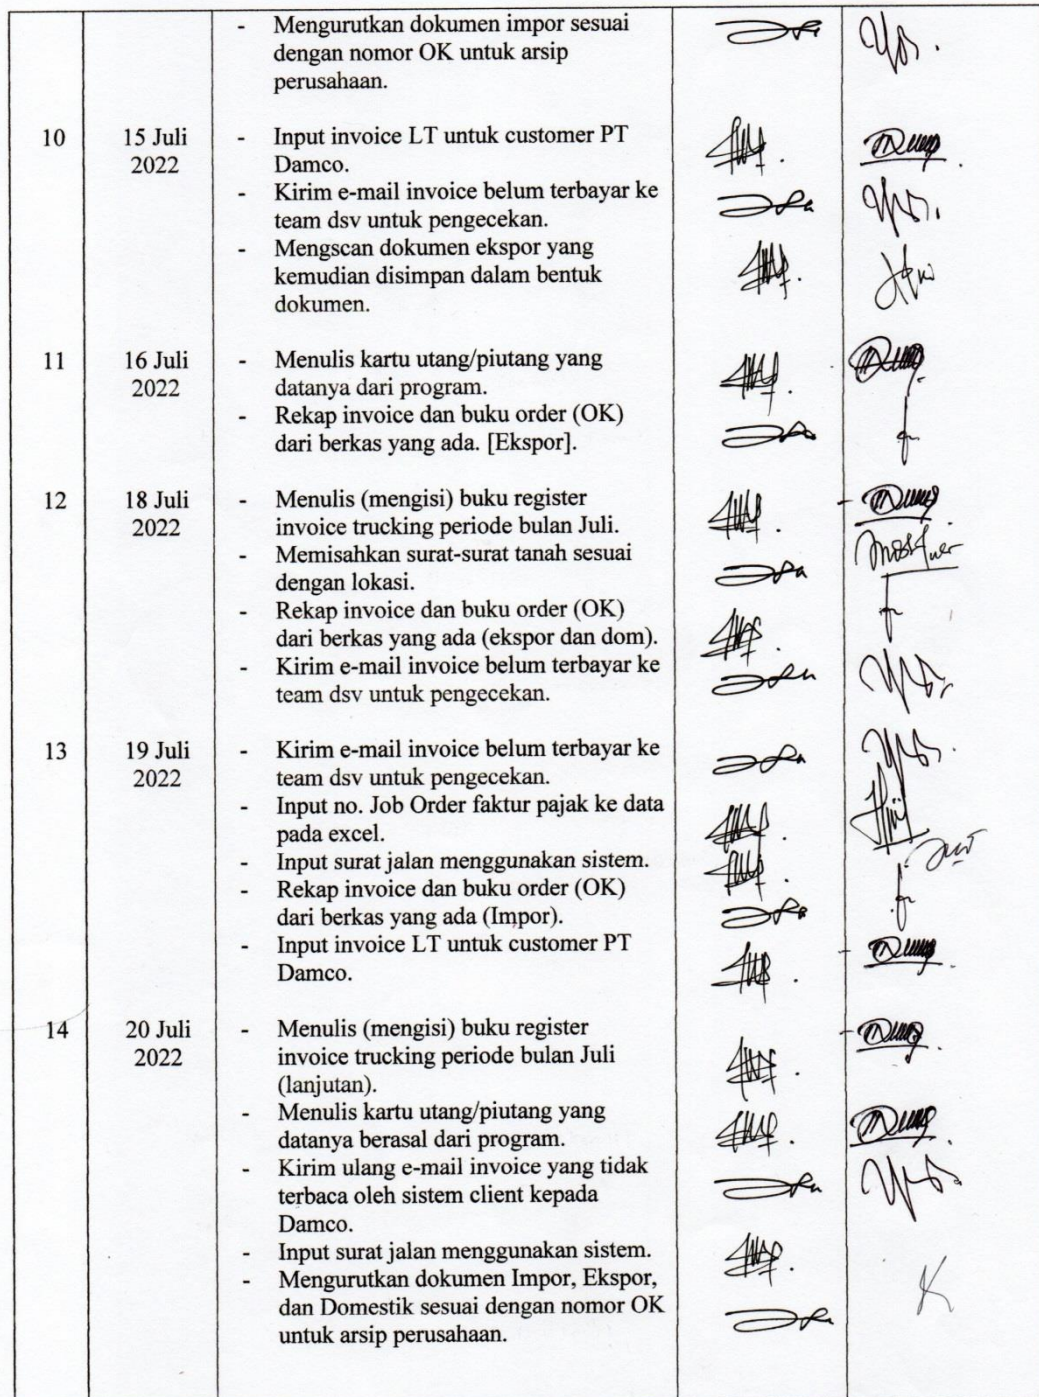 - Mengurutkan dokumen impor sesuai
dengan nomor OK untuk arsip
perusahaan.
10 15 Juli - Input invoice LT untuk customer PT
2022 Damco.
- Kirim e-mail invoice belum terbayar ke
team dsv untuk pengecekan.
- Mengscan dokumen ekspor yang
kemudian disimpan dalam bentuk
dokumen.
11 16 Juli - Menulis kartu utang/piutang yang
2022 datanya dari program.
- Rekap invoice dan buku order (OK)
dari berkas yang ada. [Ekspor].
12 18 Juli - Menulis (mengisi) buku register
2022 invoice trucking periode bulan Juli.
- Memisahkan surat-surat tanah sesuai
dengan lokasi.
- Rekap invoice dan buku order (OK)
dari berkas yang ada (ekspor dan dom).
- Kirim e-mail invoice belum terbayar ke
team dsv untuk pengecekan.
13 19 Juli - Kirim e-mail invoice belum terbayar ke
2022 team dsv untuk pengecekan.
- Input no. Job Order faktur pajak ke data
pada excel.
- Input surat jalan menggunakan sistem.
- Rekap invoice dan buku order (OK)
dari berkas yang ada (Impor).
- Input invoice LT untuk customer PT
Damco.
14 20 Juli - Menulis (mengisi) buku register
2022 invoice trucking periode bulan Juli
(lanjutan).
- Menulis kartu utang/piutang yang
datanya berasal dari program.
- Kirim ulang e-mail invoice yang tidak
terbaca oleh sistem client kepada
Damco.
- Input surat jalan menggunakan sistem.
- Mengurutkan dokumen Impor, Ekspor,
dan Domestik sesuai dengan nomor OK
untuk arsip perusahaan.